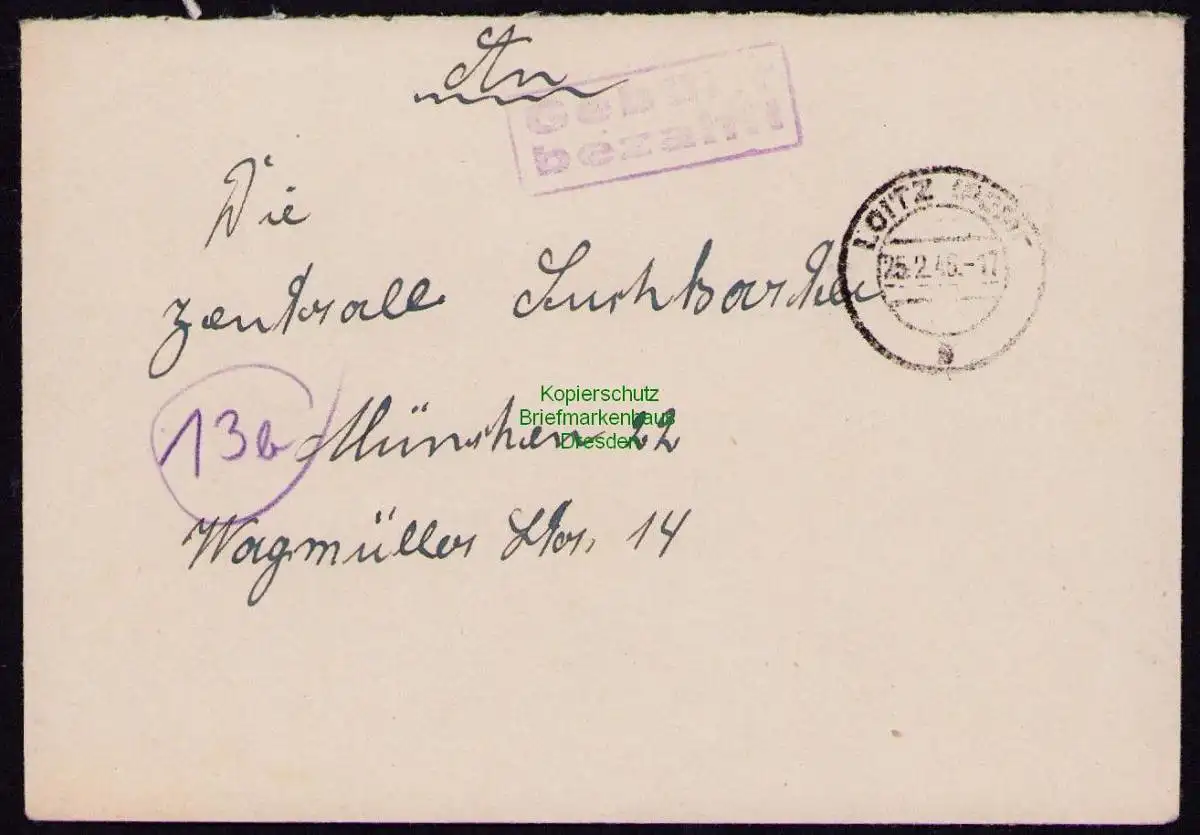 An
Gebühr
bezahlt
Die
LOITZ
25.2.46.-17
a
Zentralle Suchkartei
Kopierschutz
Briefmarkenhaus
Dresden
13b München 22
Wagmüller Str. 14